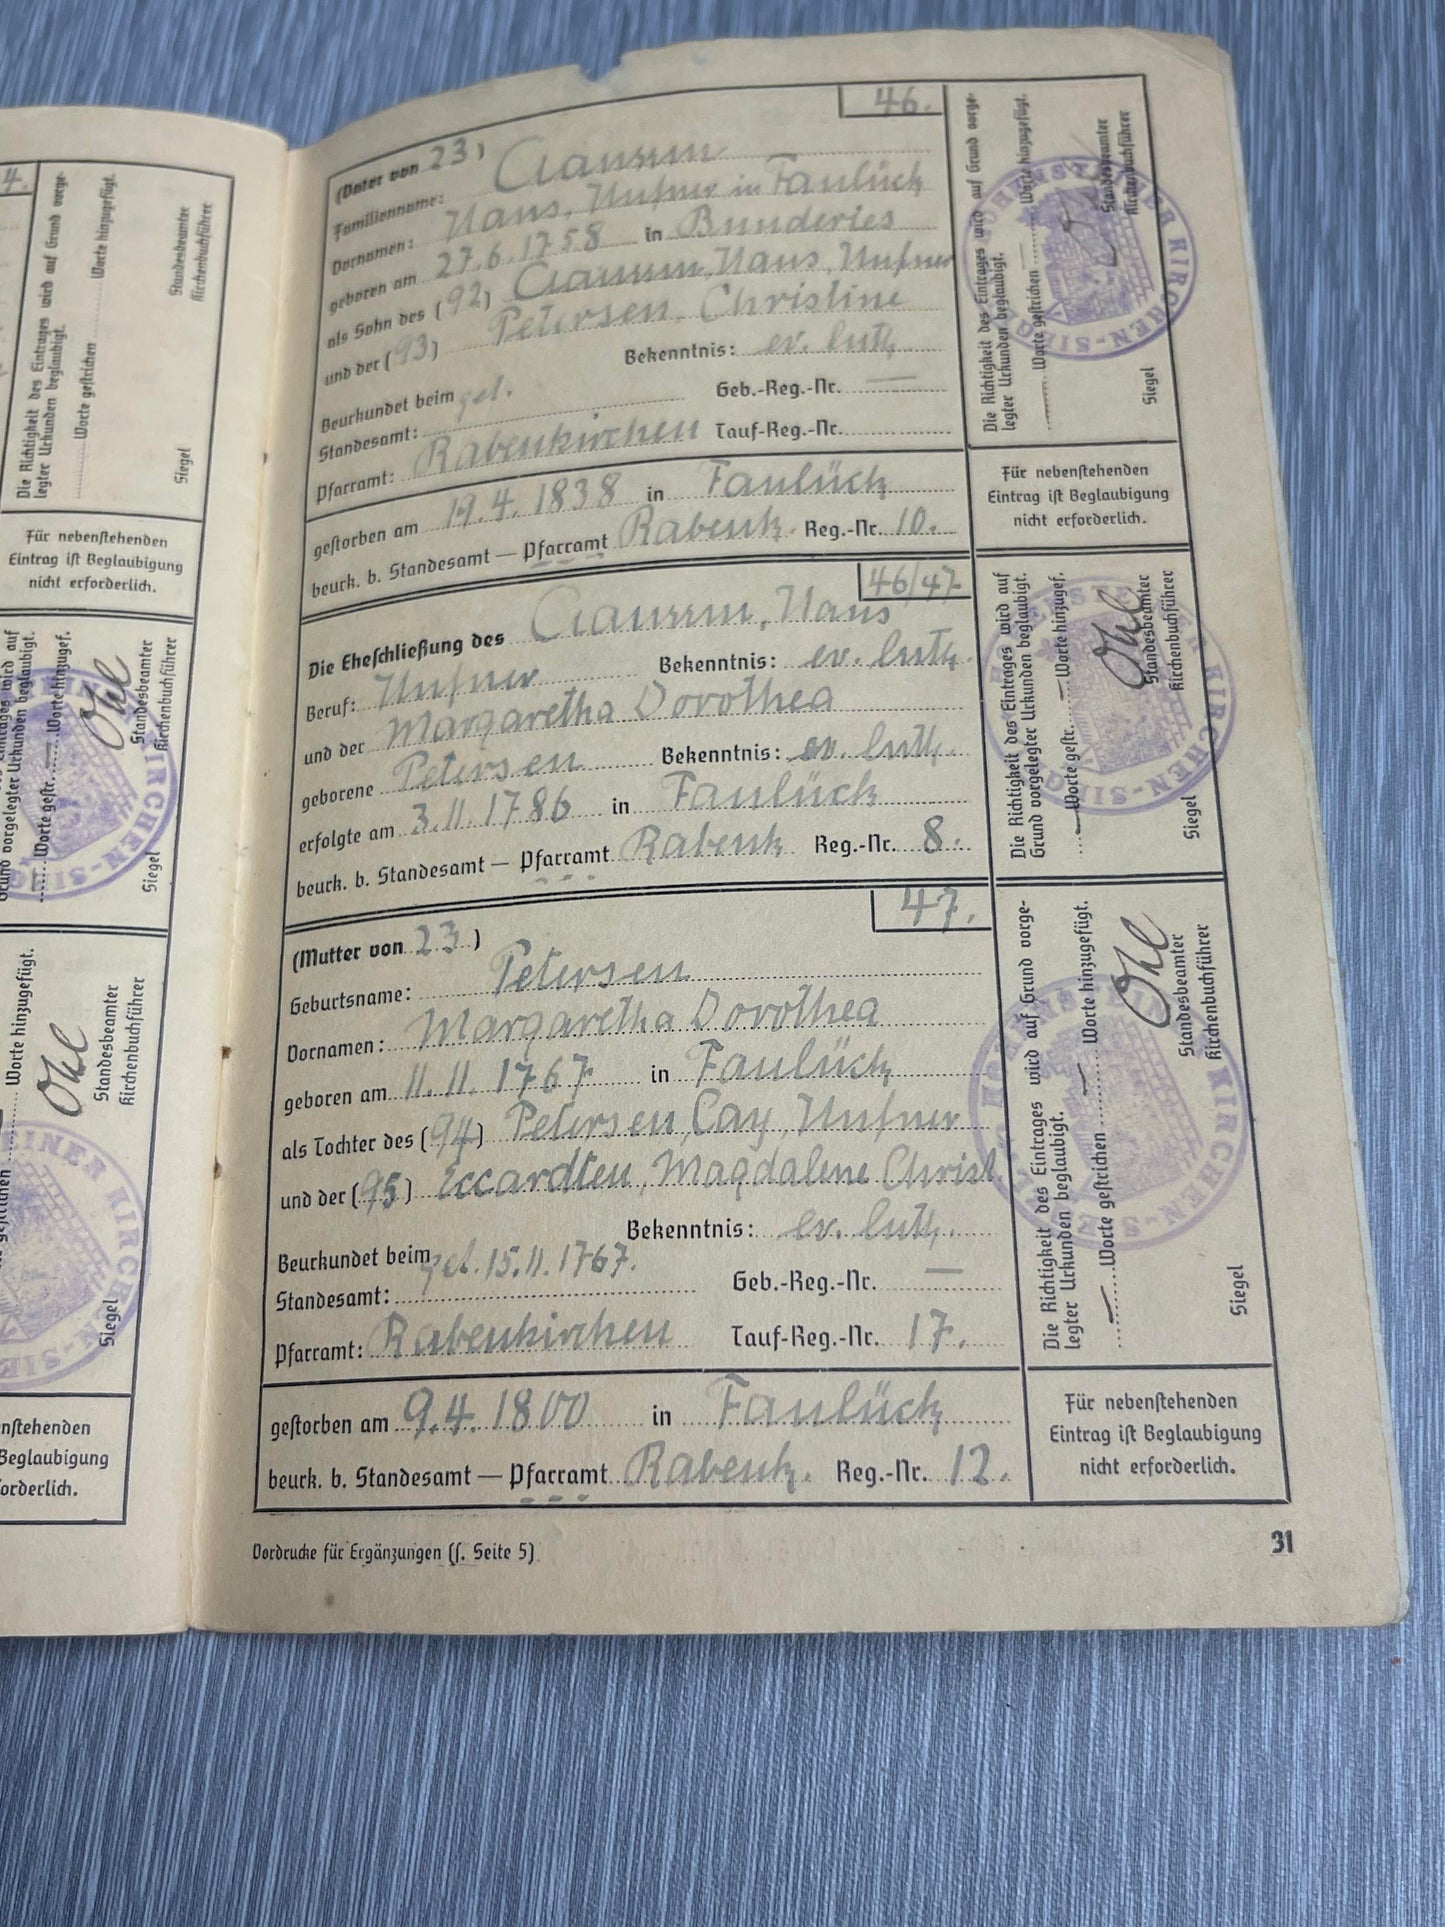 4.
Die Richtigkeit des Eintrages wird auf Grund vorge-
legter Urkunden beglaubigt.
Worte gestrichen
Worte hinzugefügt.
Siegel
Standesbeamter
Kirchenbuchführer
Für nebenstehenden
Eintrag ist Beglaubigung
nicht erforderlich.
wird auf
Grund vorgelegter Urkunden beglaubigt.
Worte gestr. Worte hinzugef.
Ohl
Siegel
Standesbeamter
Kirchenbuchführer
KIRCHEN-SIEG
Worte hinzugefügt.
Ohl
Standesbeamter
Kirchenbuchführer
Siegel
EINER KIRCHEN-SIE
nstehenden
Beglaubigung
orderlich.
46.
(Vater von 23)
Familienname: Claussen
Vornamen: Hans, Hufner in Faulück
geboren am 27.6.1758 in Bunderies
als Sohn des (92) Claussen, Hans, Hufner
und der (93) Petersen, Christine
Bekenntnis: ev. luth.
Beurkundet beim get.
Geb.-Reg.-Nr. —
Standesamt:
Pfarramt: Rabenkirchen Tauf-Reg.-Nr.
gestorben am 19.4.1838 in Faulück
beurk. b. Standesamt — Pfarramt Rabenk. Reg.-Nr. 10.
Die Richtigkeit des Eintrages wird auf Grund vorge-
legter Urkunden beglaubigt.
Worte gestrichen — Worte hinzugefügt.
Siegel
Standesbeamter
Kirchenbuchführer
KIRCHEN-SIEG
Für nebenstehenden
Eintrag ist Beglaubigung
nicht erforderlich.
46/47
Die Eheschließung des Claussen, Hans
Beruf: Hufner Bekenntnis: ev. luth.
und der Margaretha Dorothea
geborene Petersen Bekenntnis: ev. luth.
erfolgte am 3.11.1786 in Faulück
beurk. b. Standesamt — Pfarramt Rabenk. Reg.-Nr. 8.
Die Richtigkeit des Eintrages wird auf
Grund vorgelegter Urkunden beglaubigt.
— Worte gestr. — Worte hinzugef.
Ohl
Siegel
Standesbeamter
Kirchenbuchführer
KIRCHEN-SIEG
47.
(Mutter von 23)
Geburtsname: Petersen
Vornamen: Margaretha Dorothea
geboren am 11.11.1767 in Faulück
als Tochter des (94) Petersen, Cay, Hufner
und der (95) Eccardten, Magdalene Christ.
Bekenntnis: ev. luth.
Beurkundet beim get. 15.11.1767.
Geb.-Reg.-Nr. —
Standesamt:
Pfarramt: Rabenkirchen Tauf-Reg.-Nr. 17.
gestorben am 9.4.1800 in Faulück
beurk. b. Standesamt — Pfarramt Rabenk. Reg.-Nr. 12.
Die Richtigkeit des Eintrages wird auf Grund vorge-
legter Urkunden beglaubigt.
— Worte gestrichen — Worte hinzugefügt.
Ohl
Siegel
Standesbeamter
Kirchenbuchführer
KIRCHEN-S
Für nebenstehenden
Eintrag ist Beglaubigung
nicht erforderlich.
Vordrucke für Ergänzungen (s. Seite 5)
31